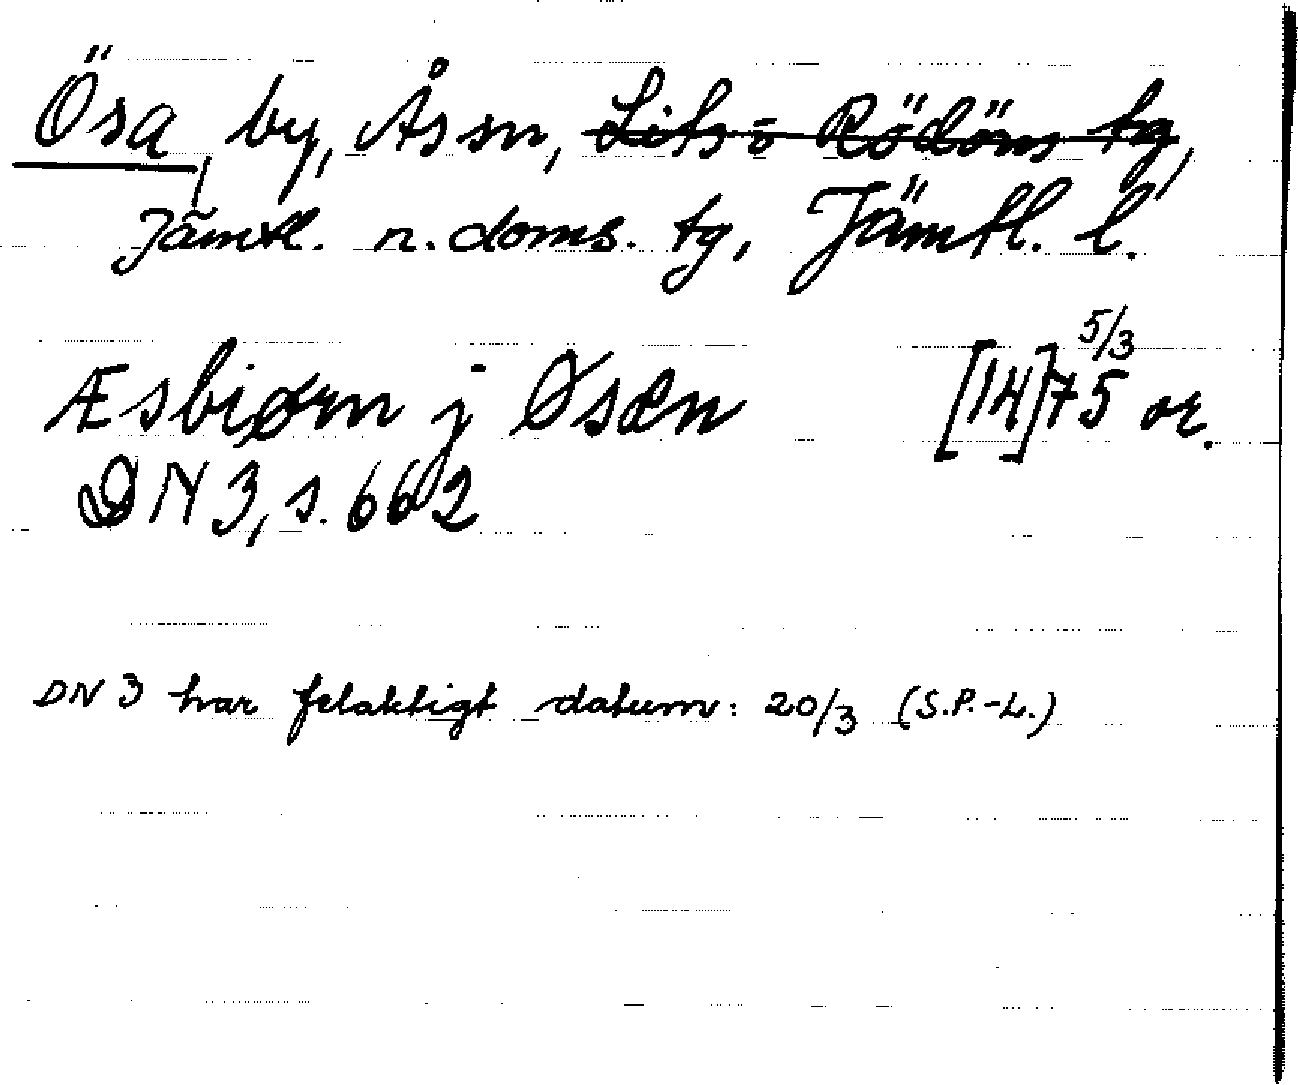 Ösa, by, Ås sn, Lits o Rödöns tg,
Jämtl. n. doms. tg, Jämtl. l.
Æsbiørn j Øsæn [14]75 5/3 or.
DN 3, s. 662
DN 3 har felaktigt datum: 20/3 (S.P.-L.)